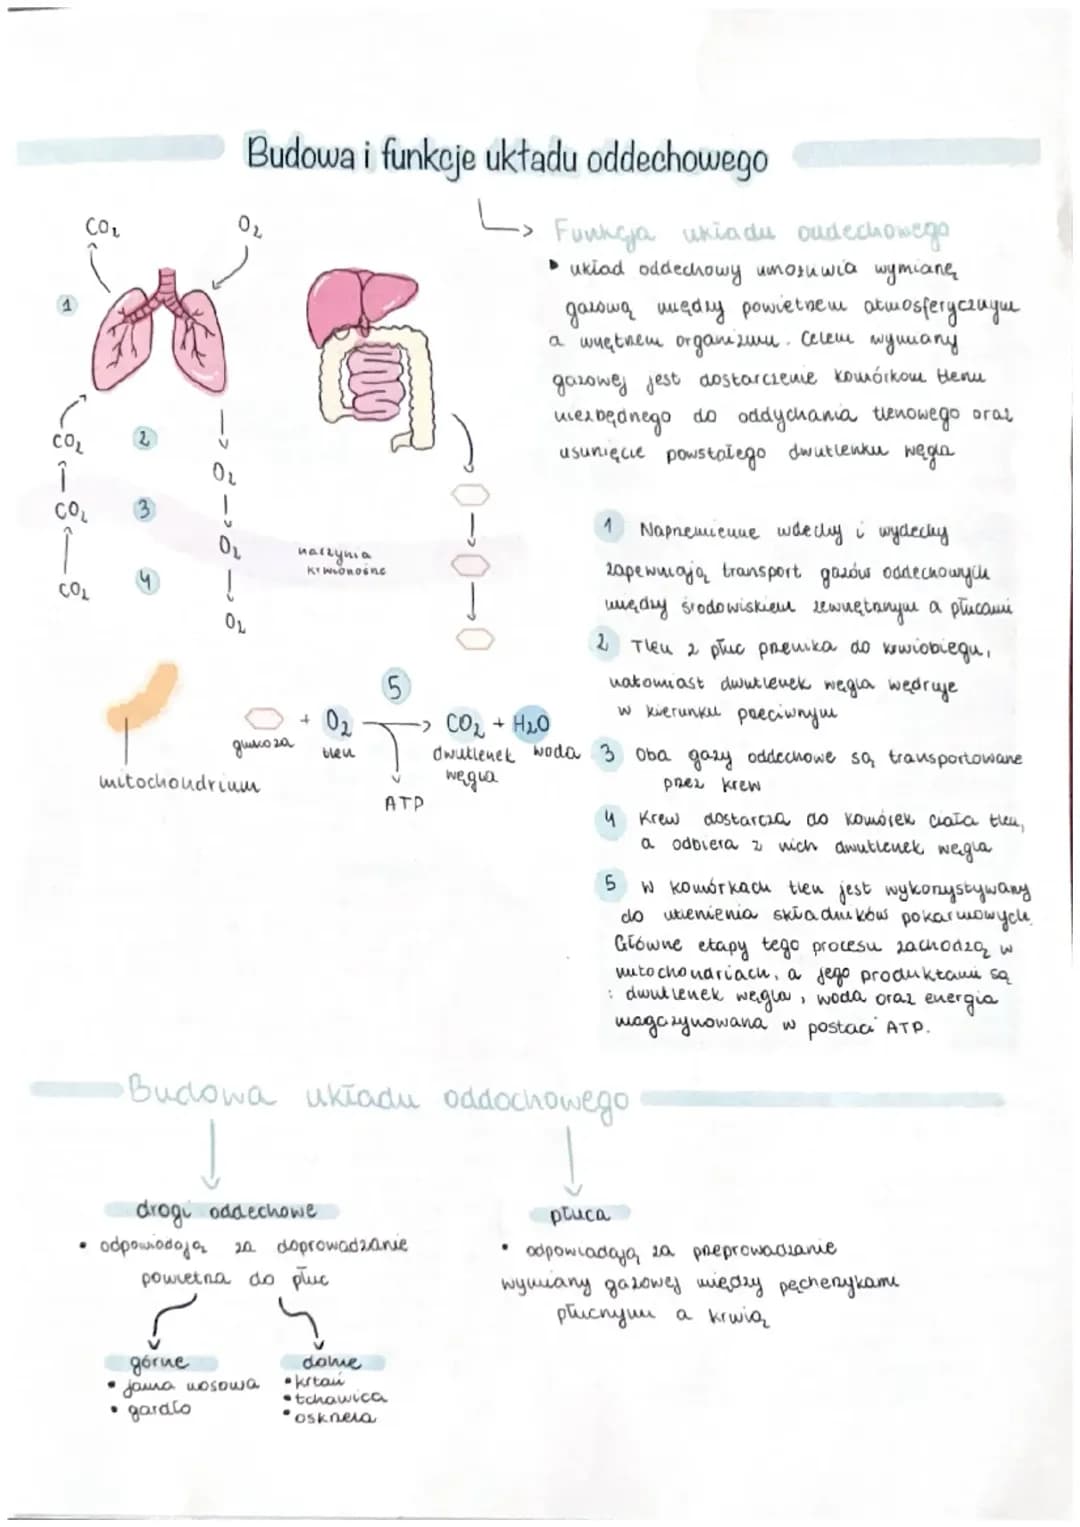 Budowa i funkcje układu oddechowego
CO₂
O₂
1
CO₂
2
O₂
CO₂
3
O₂
naczynia
krwionośne
CO₂
4
O₂
5
+ O₂
CO₂ + H₂O
glukoza
tlen
dwutlenek
węgla
woda
ATP
mitochondrium
Funkcja układu oddechowego
układ oddechowy umożliwia wymianę
gazową między powietrzem atmosferycznym
a wnętrzem organizmu. Celem wymiany
gazowej jest dostarczenie komórkom tlenu
niezbędnego do oddychania tlenowego oraz
usunięcie powstałego dwutlenku węgla
1 Naprzemienne wdechy i wydechy
zapewniają transport gazów oddechowych
między środowiskiem zewnętrznym a płucami
2 Tlen z płuc przenika do krwiobiegu,
natomiast dwutlenek węgla wędruje
w kierunku przeciwnym
3 Oba gazy oddechowe są transportowane
przez krew
4 Krew dostarcza do komórek ciała tlen,
a odbiera z nich dwutlenek węgla
5 W komórkach tlen jest wykorzystywany
do utlenienia składników pokarmowych.
Główne etapy tego procesu zachodzą w
mitochondriach, a jego produktami są
: dwutlenek węgla, woda oraz energia
magazynowana w postaci ATP.
Budowa układu oddochowego
drogi oddechowe
• odpowiadają za doprowadzanie
powietrza do płuc
górne
• jama nosowa
• gardło
dolne
• krtań
• tchawica
• oskrzela
płuca
• odpowiadają za przeprowadzanie
wymiany gazowej między pęcherzykami
płucnymi a krwią